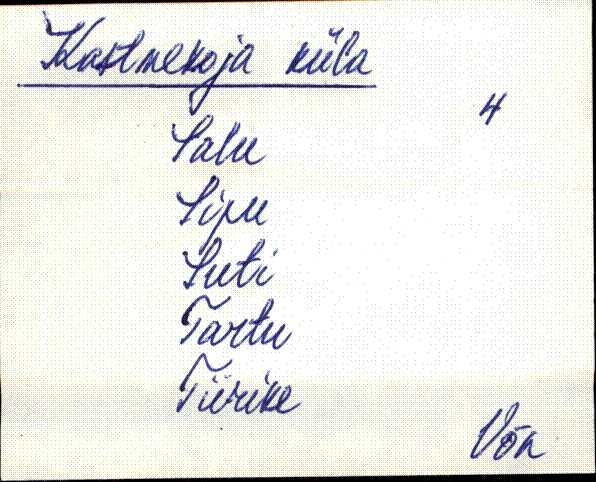 Kastmekoja küla
4
Salu
Sipu
Suti
Tartu
Tiirike
Võn